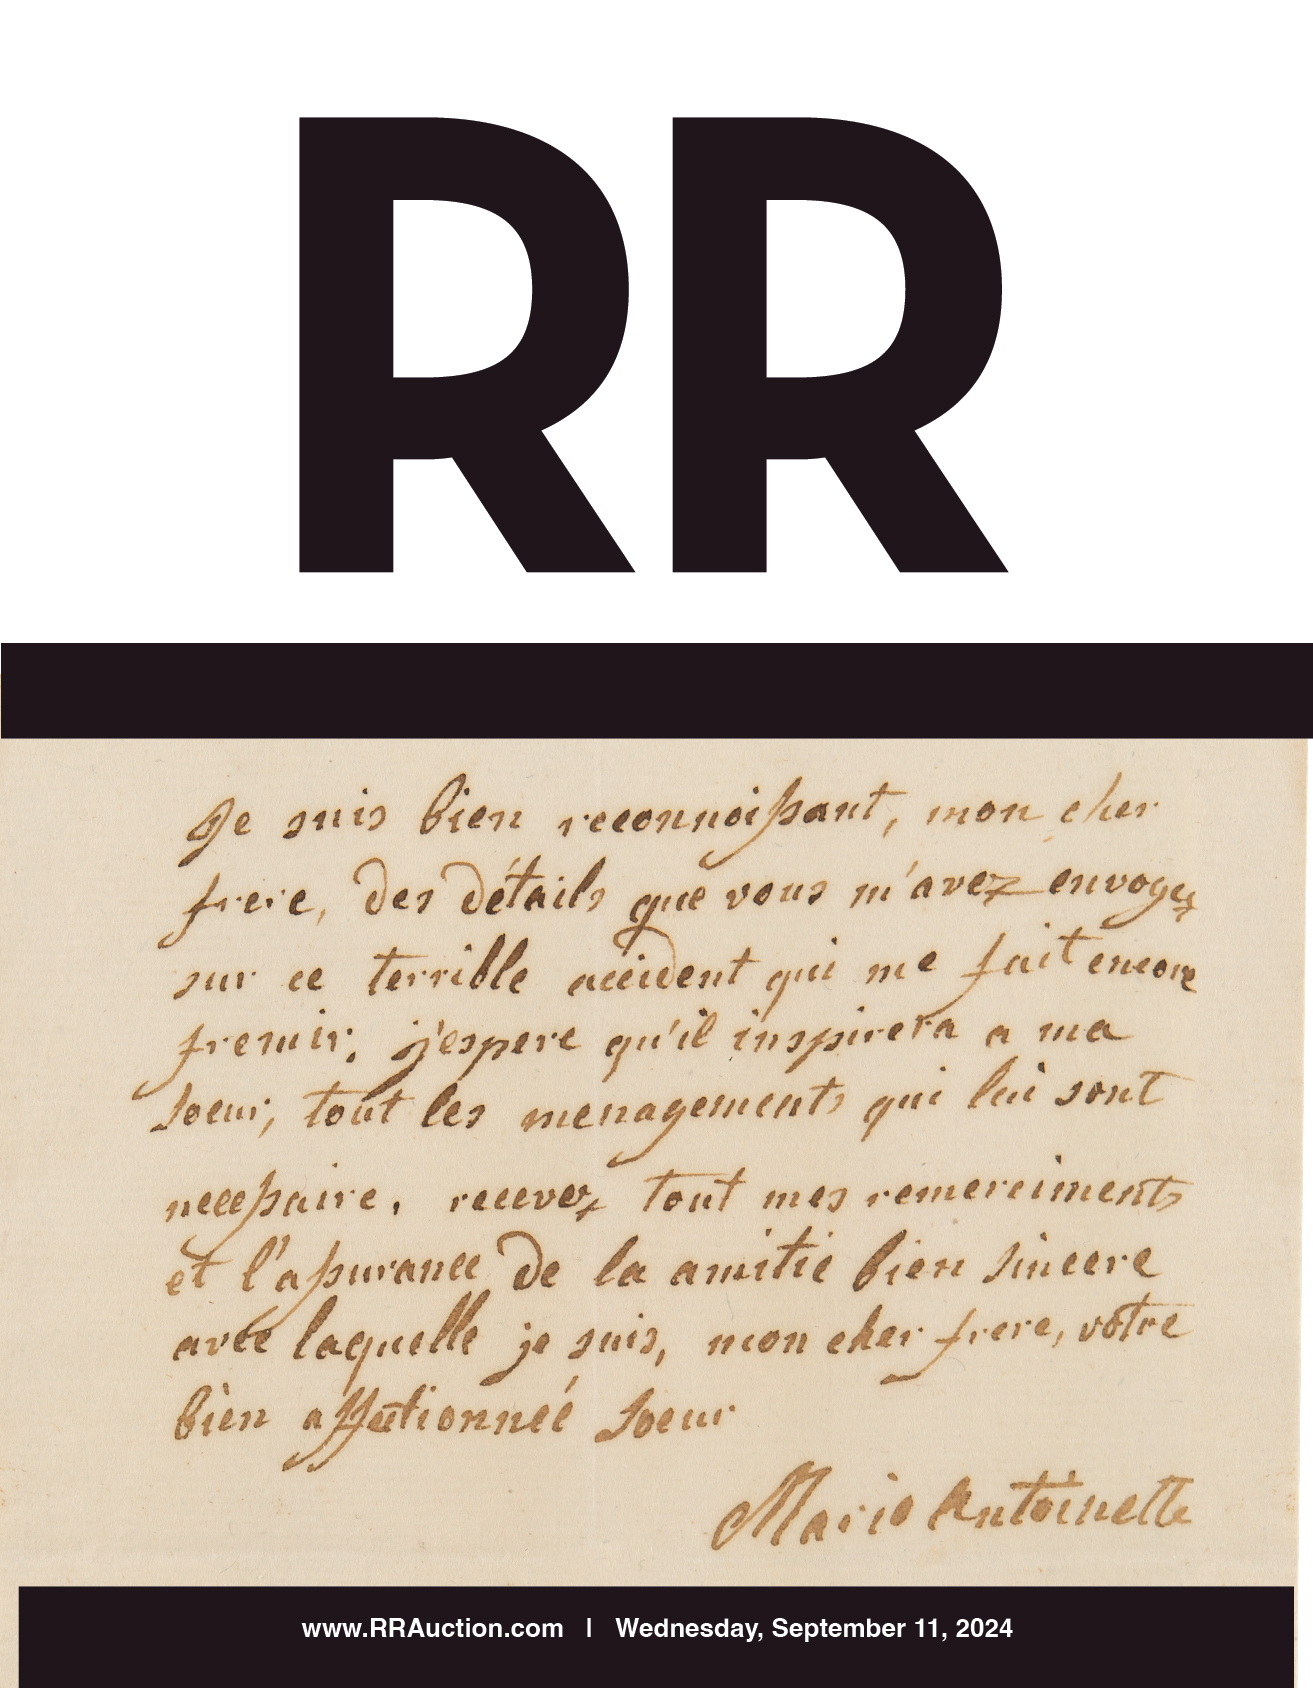 RR
Je suis bien reconnoissant, mon cher
frere, des détails que vous m'avez envoyes
sur ce terrible accident qui me fait encore
fremir, j'espere qu'il inspirera a ma
soeur, tout les menagements qui lui sont
necessaire, recevez tout mes remerciments
et l'assurance de la amitie bien sincere
avec laquelle je suis, mon cher frere, votre
bien affectionnéé soeur
Marie Antoinette
www.RRAuction.com | Wednesday, September 11, 2024